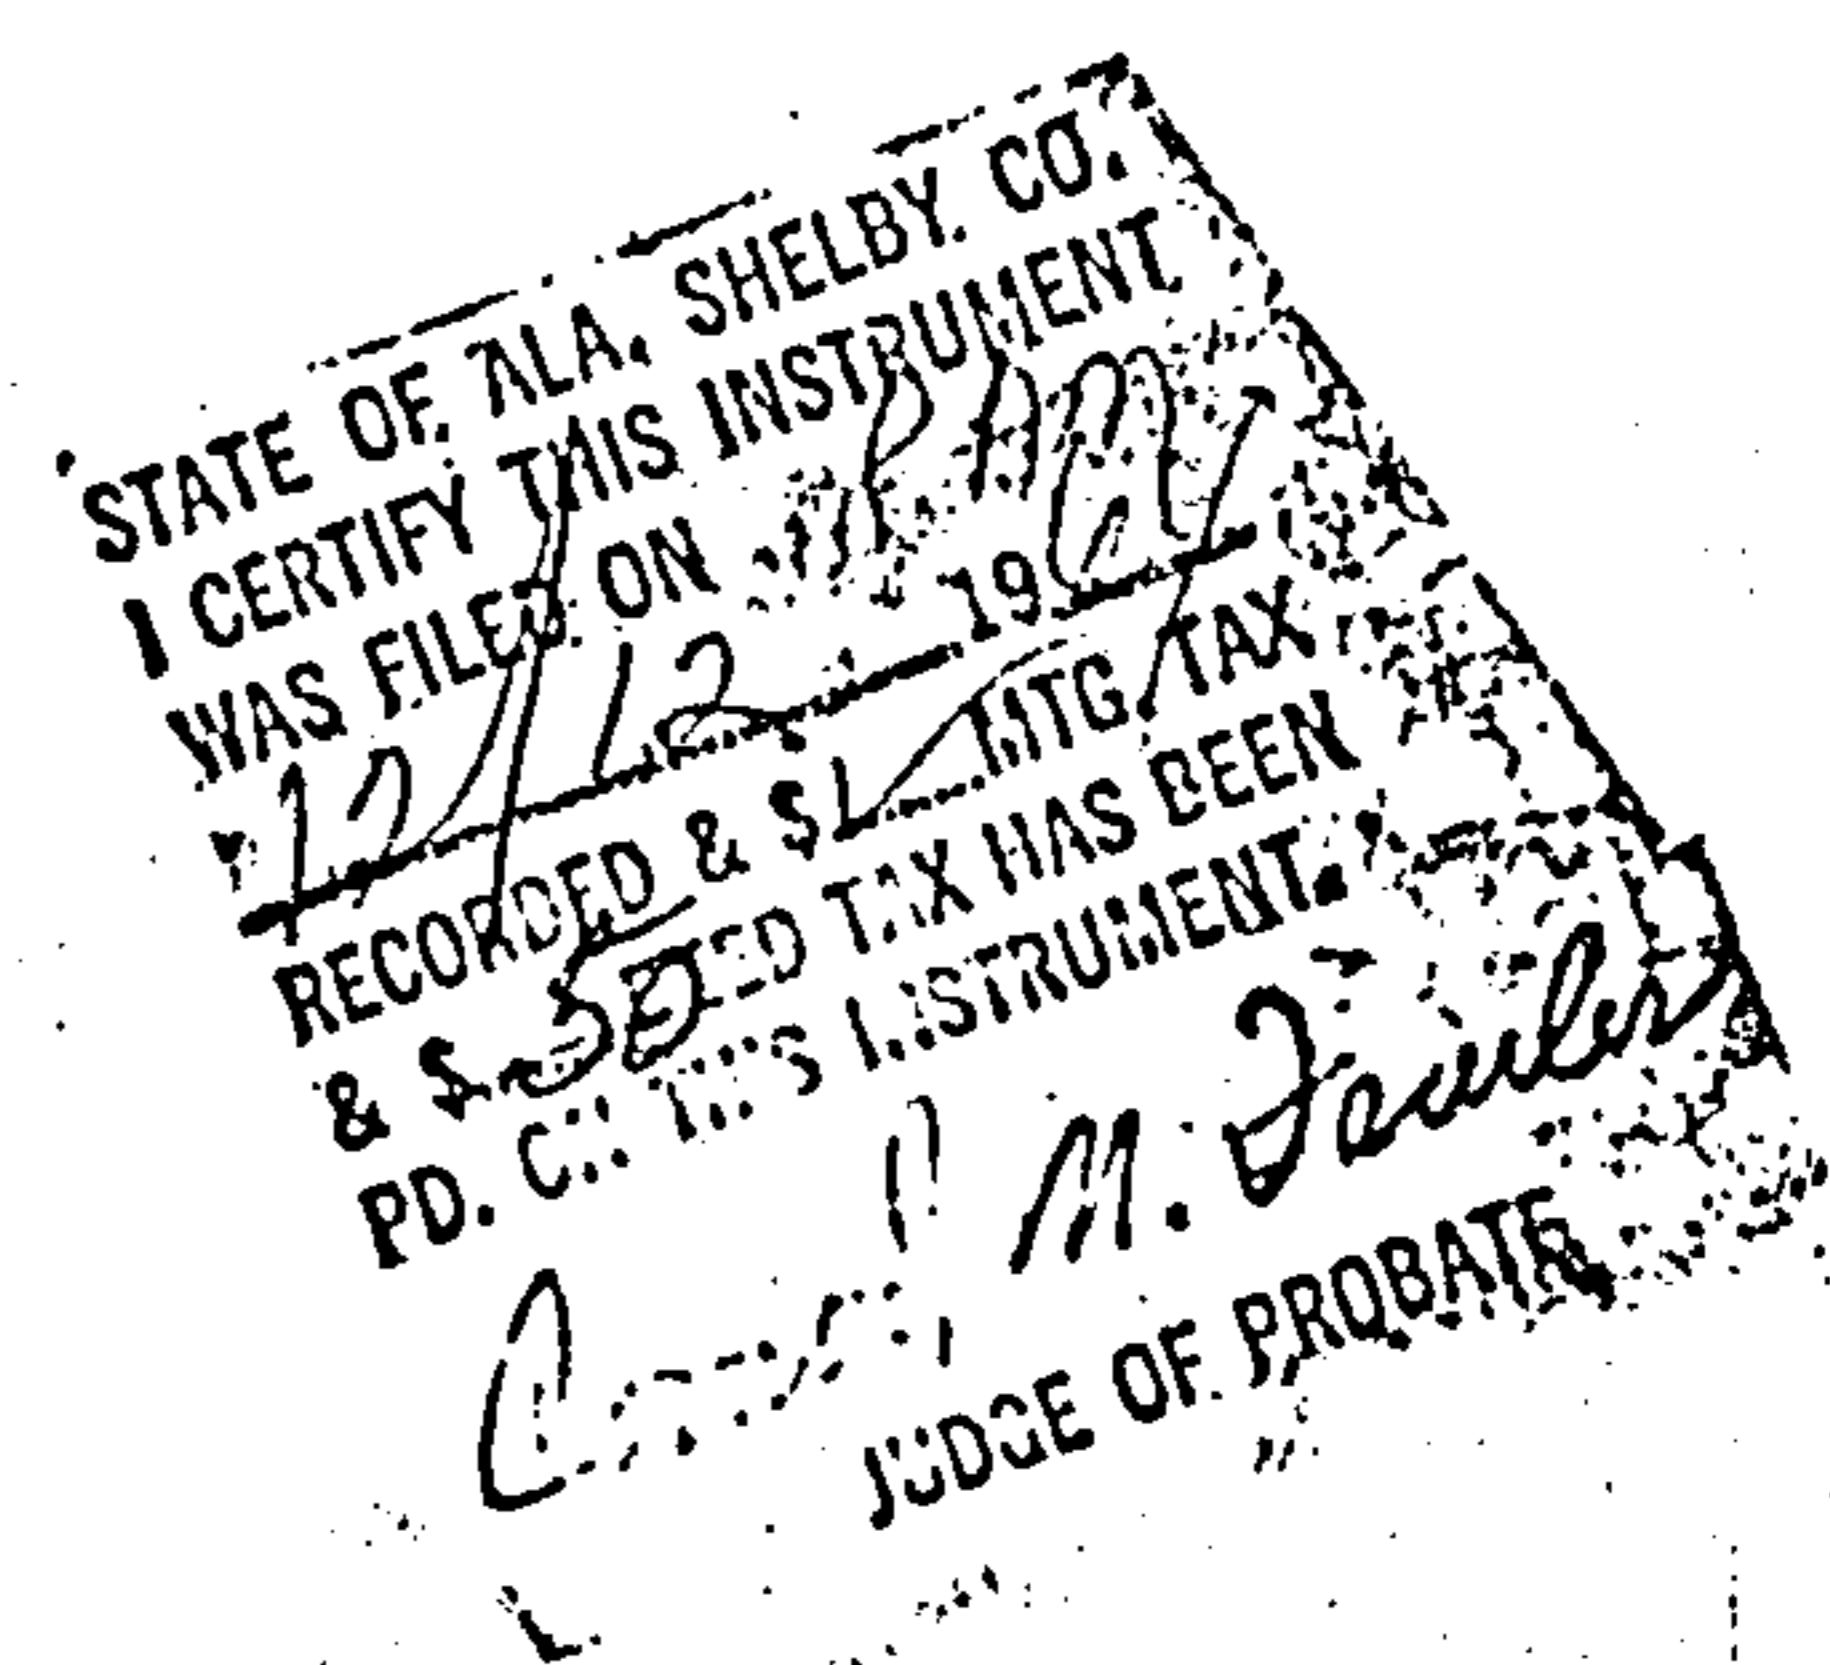 STATE OF ALA. SHELBY CO.
I CERTIFY THIS INSTRUMENT
WAS FILED ON
12/12 19
RECORDED & $ MTG. TAX
& $ .50 DEED TAX HAS BEEN
PD. ON THIS INSTRUMENT.
M. Fowler
JUDGE OF PROBATE